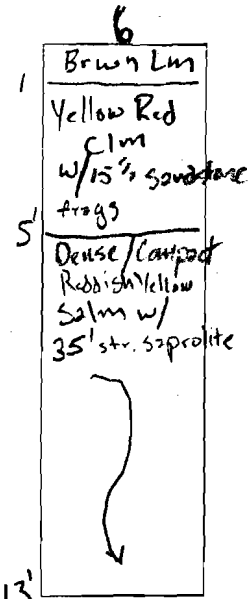 6
Brwn Lm
1
Yellow Red
Clm
w/ 15% sandstone
frags
5'
Dense/Compact
Reddish Yellow
Salm w/
35' str. saprolite
13'